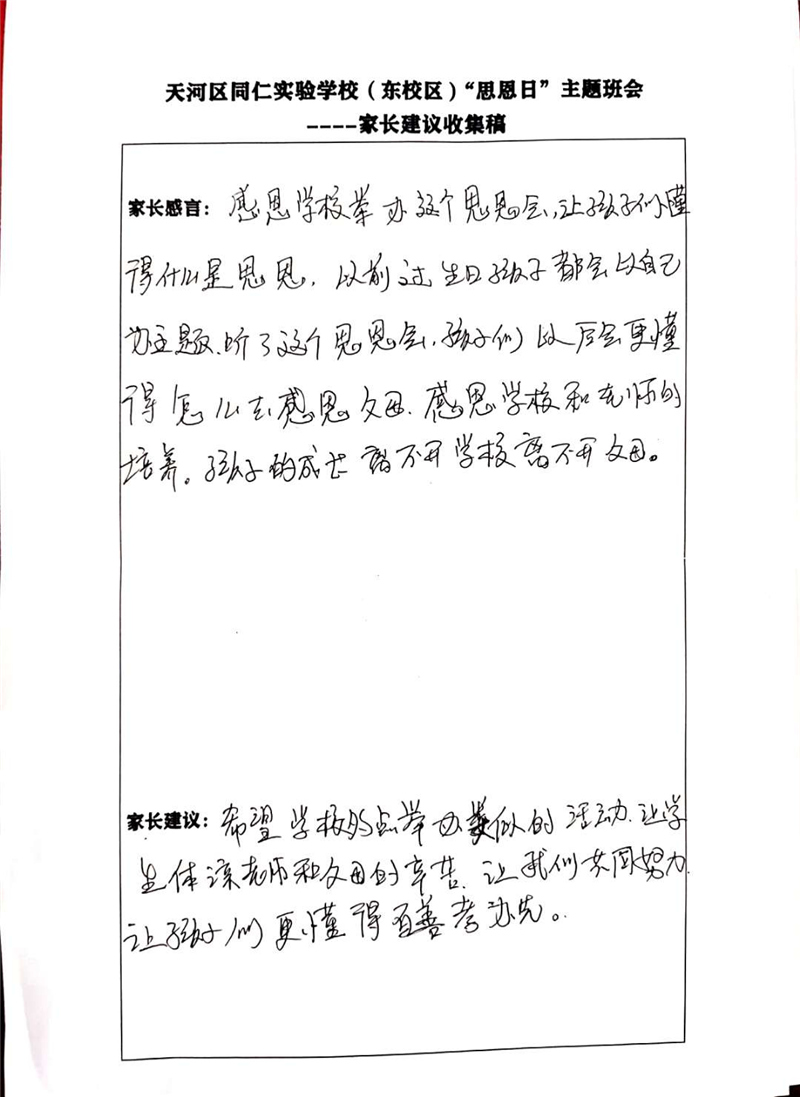 天河区同仁实验学校（东校区）“思恩日”主题班会
----家长建议收集稿
家长感言：感恩学校举办这个思恩会，让孩子们懂
得什么是思恩，以前过生日孩子都会以自己
为主题，听了这个思恩会，孩子们以后会更懂
得怎么去感恩父母，感恩学校和老师的
培养。孩子的成长离不开学校离不开父母。
家长建议：希望学校多点举办类似的活动，让学
生体谅老师和父母的辛苦，让我们共同努力，
让孩子们更懂得百善孝为先。